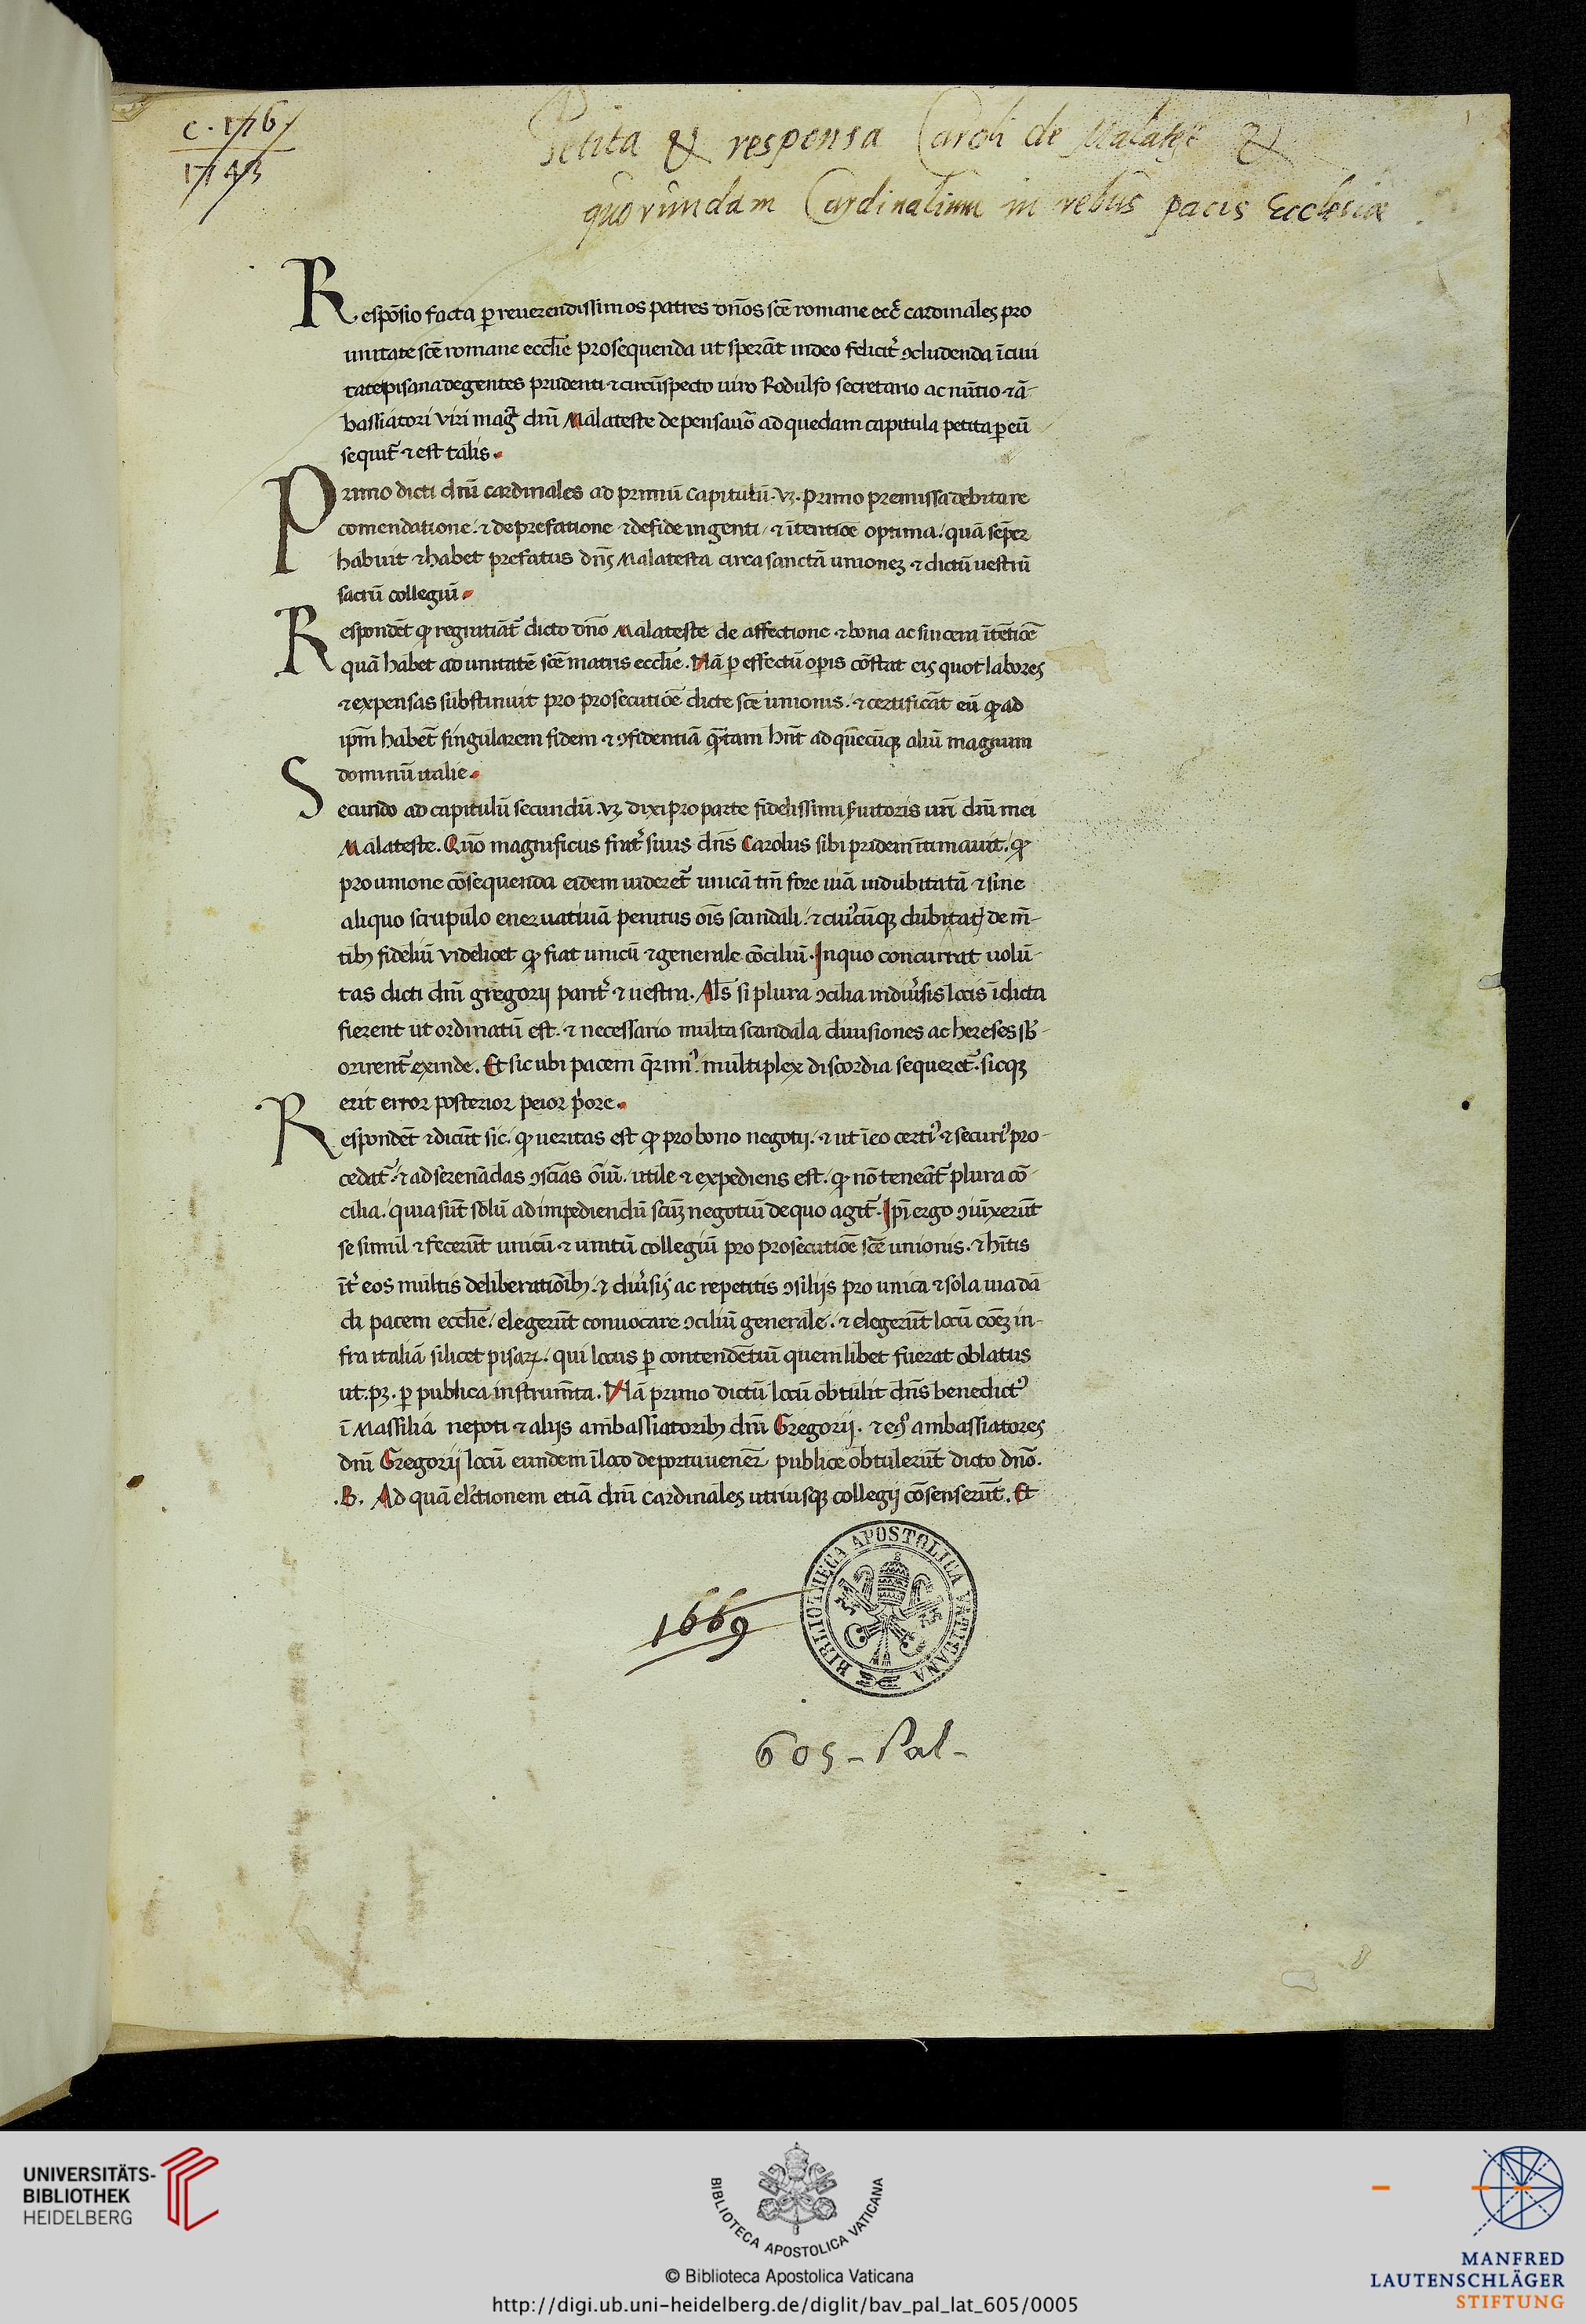 c. 176
1743
Petita & responsa Caroli de Malatest &
quorundam Cardinalium in rebus pacis Ecclesiae
Respōsio facta ꝑ reuerendissimos patres dños scē romane eccͤ cardinales pro
unitate scē romane ecclīe prosequenda ut sperāt in deo felicit᷑ ꝯcludenda ī ciui
tate pisana degentes prudenti ⁊ circūspecto uiro Rodulfo secretario ac nūtio ⁊ ā-
bassiatori viri mag᷑ dnī Malateste de pensauō ad quedam capitula petita ꝑ eū
sequit᷑ ⁊ est talis.
Primo dicti dnī cardinales ad primū capitulū .vꝫ. primo premissa debita re
comendatione . ⁊ de prefatione ⁊ de fide ingenti . ⁊ ītentiōe optima . quā semꝑ
habuit ⁊ habet prefatus dn̄s Malatesta circa sanctā unionez ⁊ dictū uestrū
sacrū collegiū.
Respondēt ꝙ regratiāt᷑ dicto dn̄o Malateste de affectione ⁊ bona ac sincera ītētiōe
quā habet ad unitatē scē matris ecclīe. Nā ꝑ effectū oꝑis cōstat eis quot labores
⁊ expensas substinuit pro prosecutiōe dicte scē unionis. ⁊ certificāt eū ꝙ ad
ip̄m habēt singularem fidem ⁊ ꝯfidentiā qᷓtam hn̄t ad quēcūqꝫ aliū magnum
dominū italie.
Secundo ad capitulū secundū .vꝫ. dixi pro parte fidelissimi ẜuitoris urī dnī mei
Malateste. Quō magnificus frat᷑ suus dn̄s Carolus sibi pridem ītimauit. ꝙ
pro unione cōsequenda eidem uideret᷑ unicā tm̄ fore uiā indubitatā ⁊ sine
aliquo scrupulo eneruatiuā penitus oīs scandali. ⁊ cuiuscūqꝫ dubitatꝭ de mē-
tibꝫ fideliū videlicet ꝙ fiat unicū ⁊ generale cōciliū. In quo concurrat uolū-
tas dicti dnī gregorij parit᷑ ⁊ uestra. Als̄ si plura ꝯcilia in diuersis locis īdicta
fierent ut ordinatū est. ⁊ necessario multa scandala diuisiones ac hereses sb̄-
orirent᷑ exinde. Et sic ubi pacem qūrimꝰ multiplex discordia sequeret᷑. sicqꝫ
erit error posterior peior priore.
Respondēt ⁊ dicūt sic. ꝙ ueritas est ꝙ pro bono negotij. ⁊ ut ī eo certiꝰ ⁊ securiꝰ pro-
cedat᷑. ⁊ ad serenādas ꝯsciās oīuī. utile ⁊ expediens est. ꝙ nō teneāt᷑ plura cō-
cilia. quia sūt solū ad impediendū scūꝫ negotiū de quo agit᷑. Ipī ergo ꝯiūxerūt
se simul ⁊ fecerūt unicū ⁊ unitū collegiū pro prosecutiōe scē unionis. ⁊ hītis
īt᷑ eos multis deliberatiōibꝫ. ⁊ diuersis ac repetitis ꝯsilijs pro unica ⁊ sola uia dā
di pacem ecclīe. elegerūt conuocare ꝯciliū generale. ⁊ elegerūt locū coēꝫ in-
fra italiā silicet pisaꝝ. qui locus ꝑ contendētiū quemlibet fuerat oblatus
ut .pꝫ. ꝑ publica instrumēta. Nā primo dictū locū obtulit dn̄s benedictꝰ
ī Massilia nepoti ⁊ alijs ambassiatoribꝫ dnī Gregorij. ⁊ eꝯ ambassiatores
dnī Gregorij locū eundem ī loco de portu ueneꝝ publice obtulerūt dicto dn̄o.
.B. Ad quā electionem etiā dnī cardinales utriusqꝫ collegij cōsenserūt. Et
1669
BIBLIOTHECA APOSTOLICA VATICANA
605 - Pal -
UNIVERSITÄTS-
BIBLIOTHEK
HEIDELBERG
BIBLIOTECA APOSTOLICA VATICANA
© Biblioteca Apostolica Vaticana
http://digi.ub.uni-heidelberg.de/diglit/bav_pal_lat_605/0005
MANFRED
LAUTENSCHLÄGER
STIFTUNG